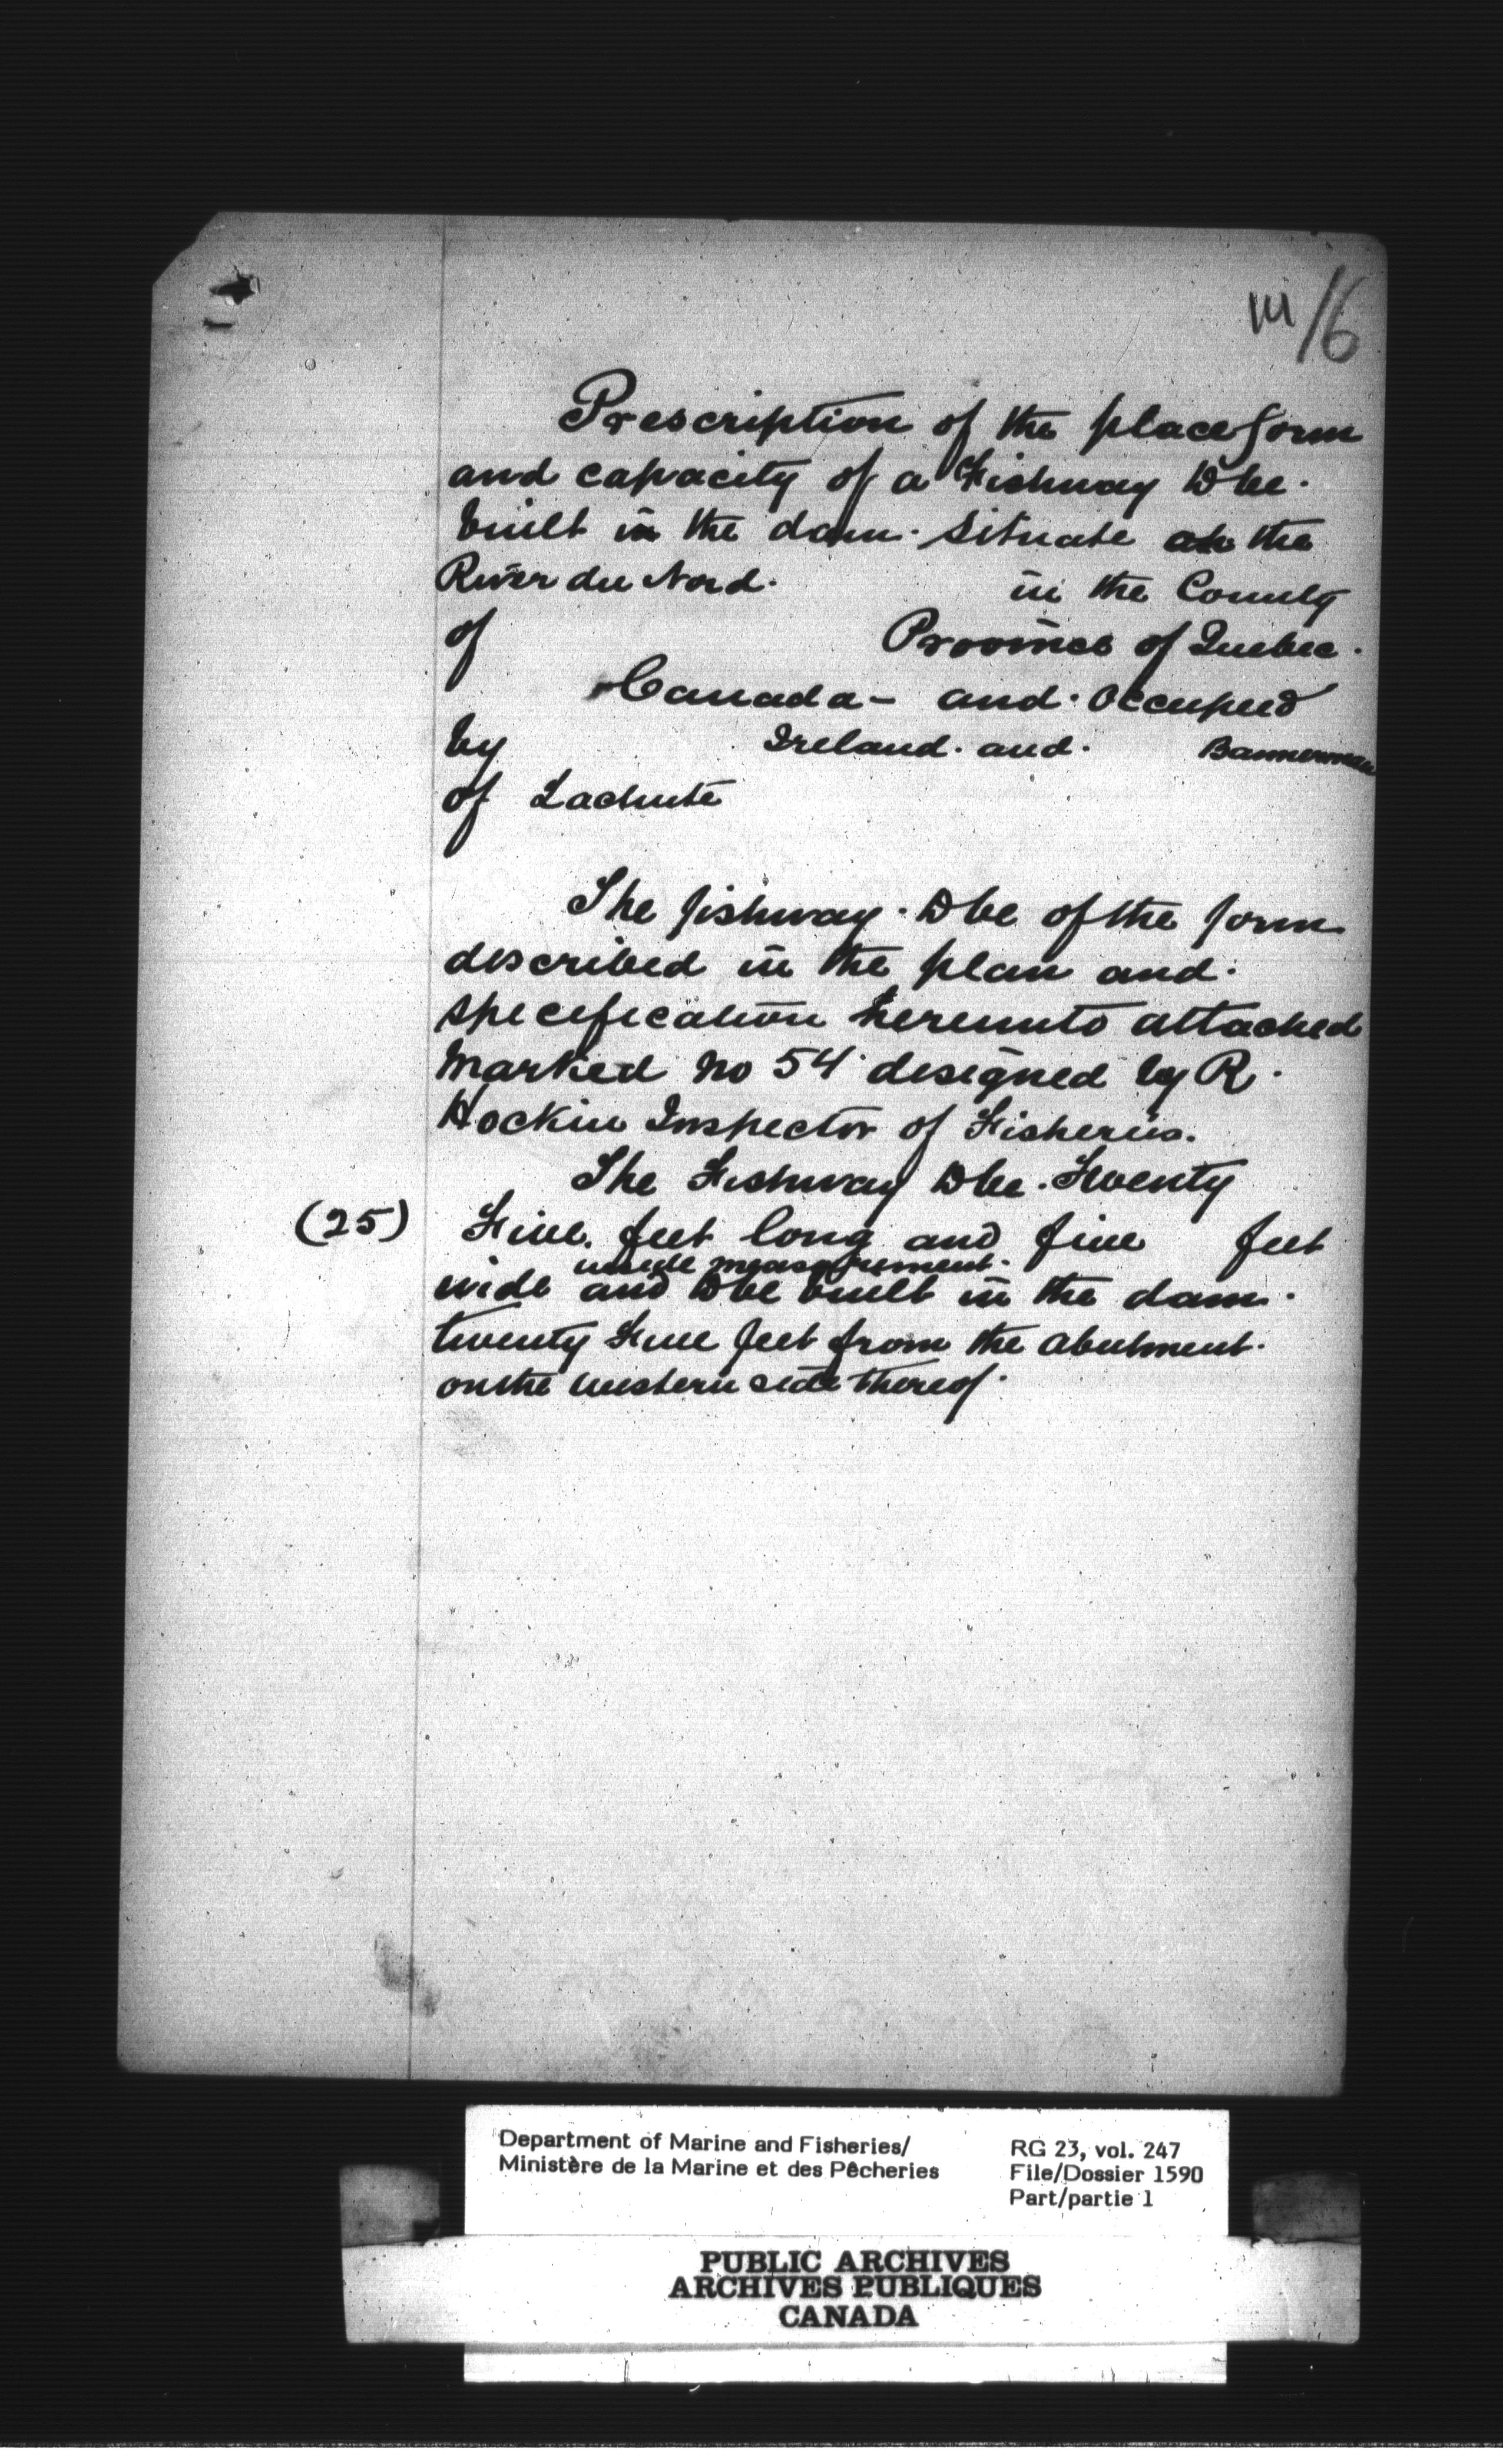 111/6
Prescription of the place form
and capacity of a Fishway to be
built in the dam. Situate on the
River du Nord. in the County
of Province of Quebec.
Canada - and occupied
by Ireland. and. Bannerman
of Lachute
The fishway to be of the form
described in the plan and
specification hereunto attached
marked No 54 designed by R.
Hockin Inspector of Fisheries.
The Fishway to be Twenty
(25) Five feet long and five feet
inside measurement.
wide and to be built in the dam.
twenty five feet from the abutment.
on the western side thereof.
Department of Marine and Fisheries/
Ministère de la Marine et des Pêcheries
RG 23, vol. 247
File/Dossier 1590
Part/partie 1
PUBLIC ARCHIVES
ARCHIVES PUBLIQUES
CANADA